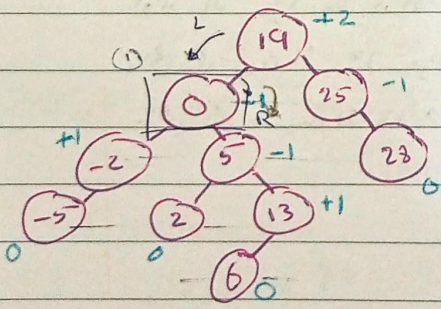 L 19 +2
(1) 0 -1 R 25 -1
+1 -2 5 -1 28 0
-5 2 13 +1
0 0 6 0